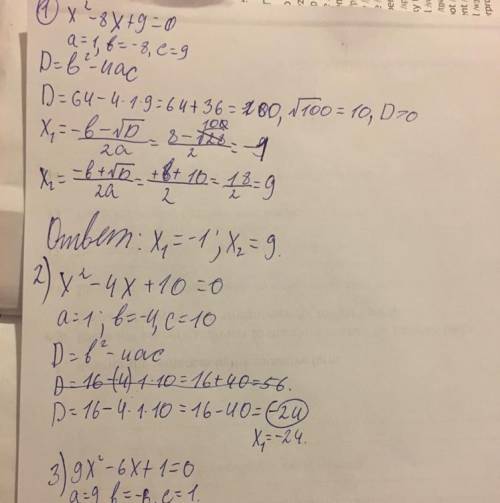 1) x²-8x+9=0
a=1, в=-8, c=9
D=в²-4ac
D=64-4·1·9=64+36=100, √100=10, D>0
x₁=-в-√D/2a=8-100/2=-9
x₂=-в+√D/2a=+8+10/2=18/2=9
Ответ: x₁=-1; x₂=9.
2) x²-4x+10=0
a=1; в=-4, c=10
D=в²-4ac
D=16-(4)·1·10=16+40=56.
D=16-4·1·10=16-40=-24
x₁=-24.
3) 9x²-6x+1=0
a=9, в=-6, c=1.